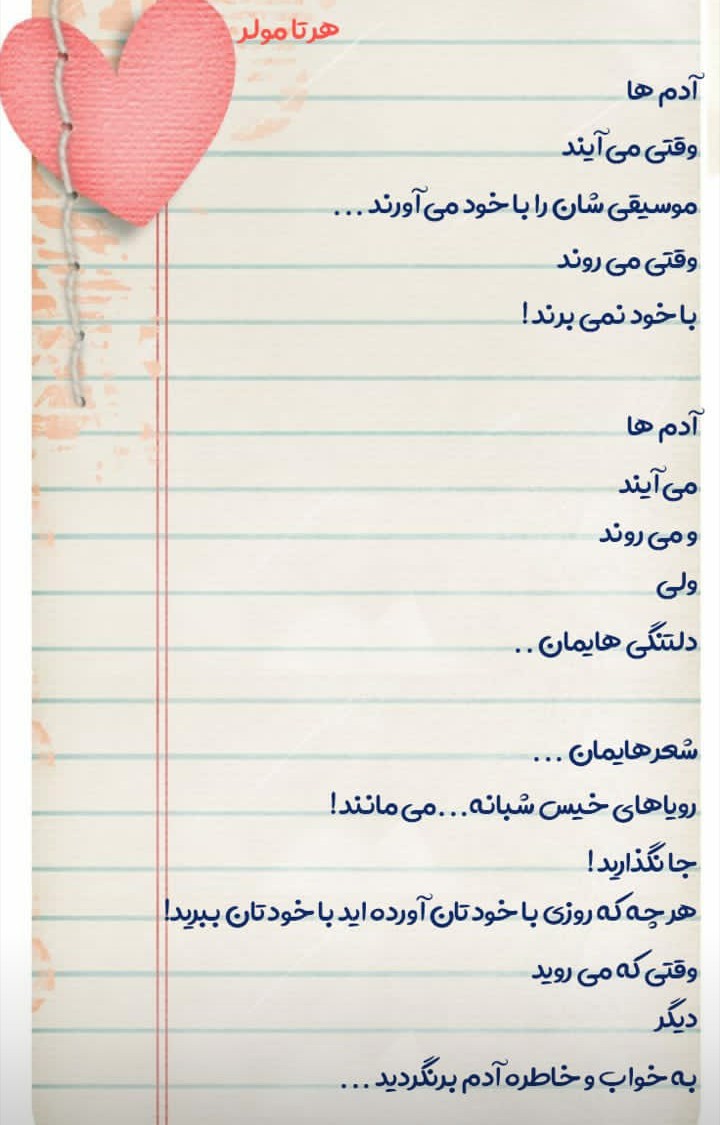 هرتا مولر
آدم ها
وقتی می آیند
موسیقی شان را با خود می آورند...
وقتی می روند
با خود نمی برند!
آدم ها
می آیند
و می روند
ولی
دلتنگی هایمان..
شعرهایمان ...
رویاهای خیس شبانه...می مانند!
جا نگذارید!
هر چه که روزی با خودتان آورده اید با خودتان ببرید!
وقتی که می روید
دیگر
به خواب و خاطره آدم برنگردید...